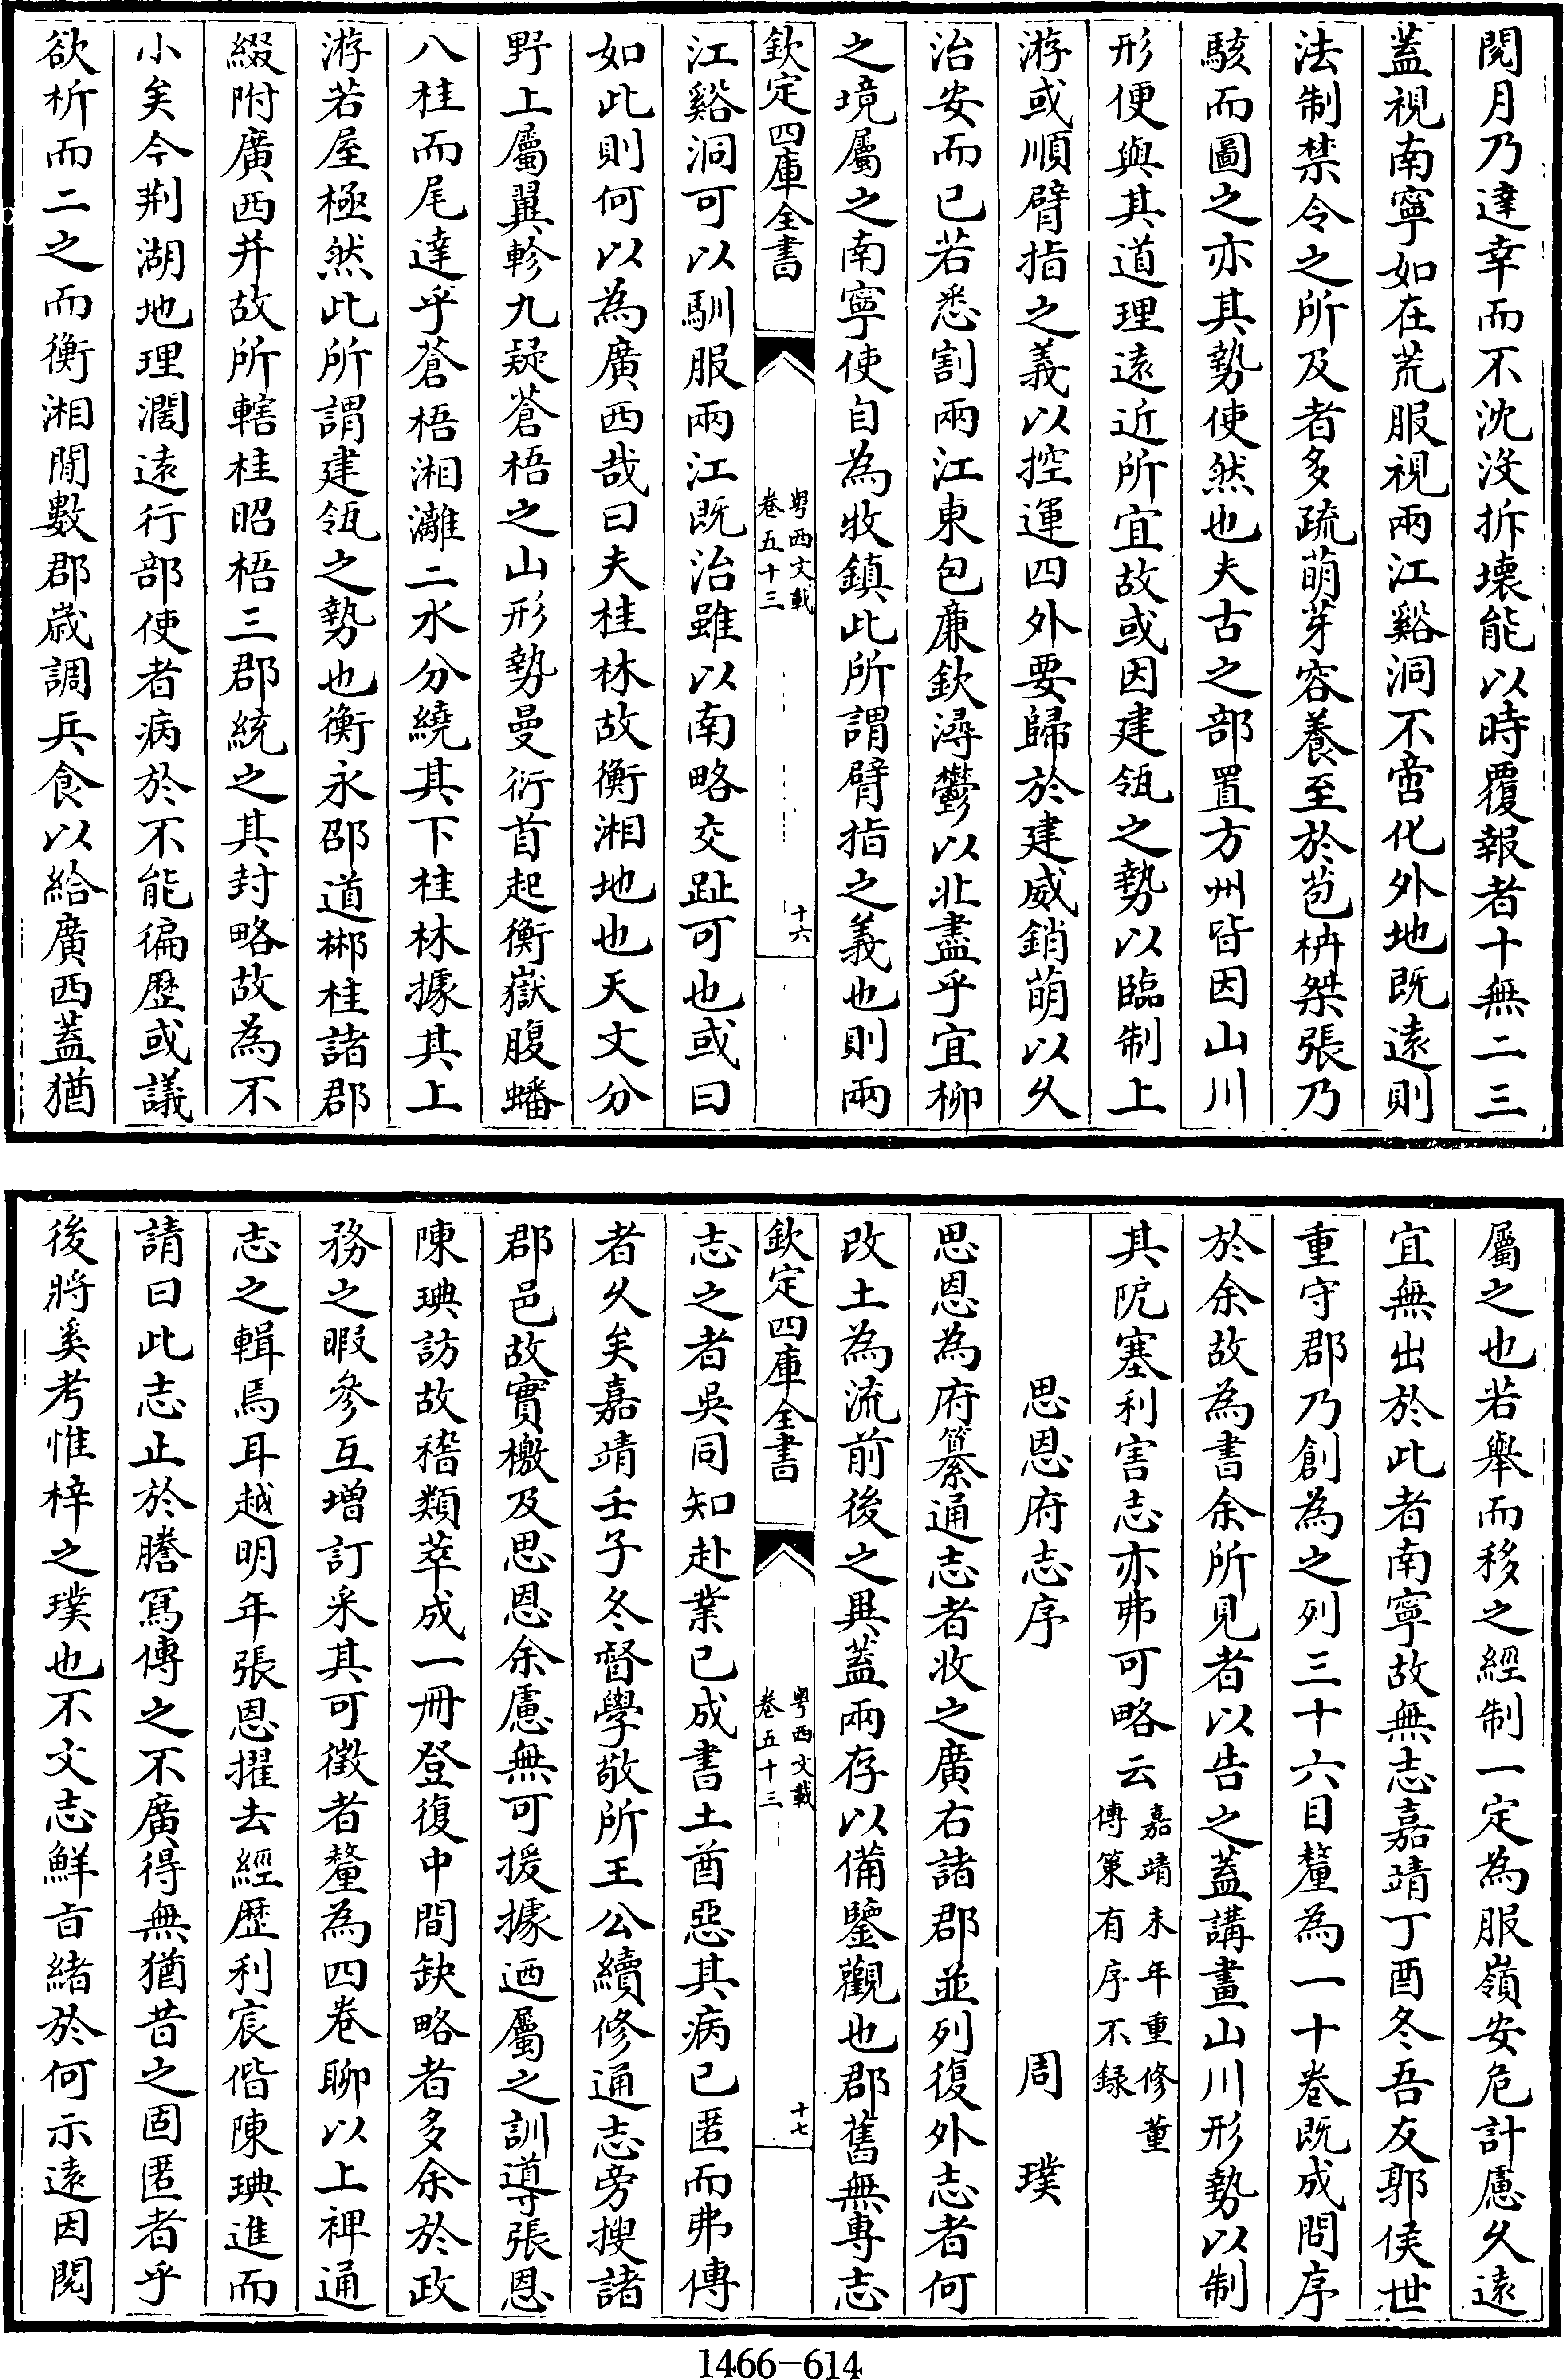 閱月乃達幸而不沈没拆壊能以時覆報者十無二三
蓋視南寧如在荒服視兩江谿洞不啻化外地既逺則
法制禁令之所及者多疏萌芽容養至於苞枿桀張乃
駭而圖之亦其勢使然也夫古之部置方州皆因山川
形便與其道理逺近所宜故或因建瓴之勢以臨制上
游或順臂指之義以控運四外要歸於建威銷萌以久
治安而已若悉割兩江東包亷欽潯鬱以北盡乎宜柳
之境屬之南寧使自為牧鎮此所謂臂指之義也則兩
欽定四庫全書
粤西文載
卷五十三
十六
江谿洞可以馴服兩江既治雖以南略交趾可也或曰
如此則何以為廣西哉曰夫桂林故衡湘地也天文分
野上屬翼軫九疑蒼梧之山形勢曼衍首起衡嶽腹蟠
八桂而尾達乎蒼梧湘灕二水分繞其下桂林據其上
游若屋極然此所謂建瓴之勢也衡永邵道郴桂諸郡
綴附廣西并故所轄桂昭梧三郡統之其封略故為不
小矣今荆湖地理濶逺行部使者病於不能徧歴或議
欲析而二之而衡湘間數郡歳調兵食以給廣西蓋猶
屬之也若舉而移之經制一定為服嶺安危計慮久逺
宜無出於此者南寧故無志嘉靖丁酉冬吾友郭侯世
重守郡乃創為之列三十六目釐為一十卷既成問序
於余故為書余所見者以告之蓋講畫山川形勢以制
其阨塞利害志亦弗可略云
嘉靖未年重修董
傳策有序不録
思恩府志序 周璞
思恩為府纂通志者收之廣右諸郡並列復外志者何
改土為流前後之異蓋兩存以備鑒觀也郡舊無專志
欽定四庫全書
粤西文載
卷五十三
十七
志之者吳同知赴業已成書土酋惡其病已匿而弗傳
者久矣嘉靖壬子冬督學敬所王公續修通志旁搜諸
郡邑故實檄及思恩余慮無可援據迺屬之訓導張恩
陳璵訪故稽類萃成一冊登復中間缺略者多余於政
務之暇參互增訂采其可徵者釐為四卷聊以上裨通
志之輯焉耳越明年張恩擢去經歴利宸偕陳璵進而
請曰此志止於謄寫傳之不廣得無猶昔之固匿者乎
後將奚考惟梓之璞也不文志鮮㫖緒於何示逺因閱
1466-614